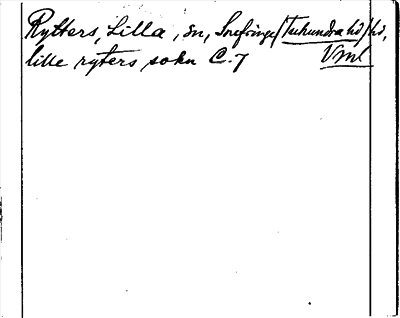 Rytters, Lilla, sn, Snefringe/Tuhundra hd/hd,
lille ryters sokn C. 7 Vml